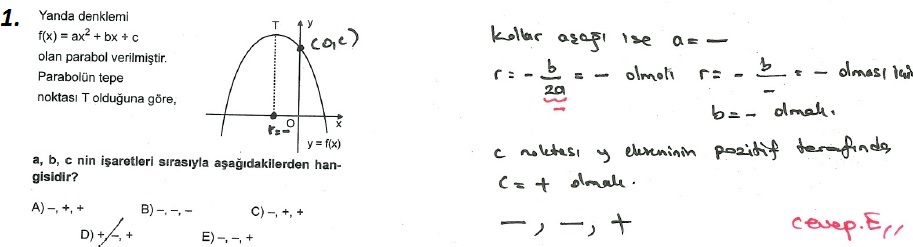 1.
Yanda denklemi
f(x) = ax² + bx + c
olan parabol verilmiştir.
Parabolün tepe
noktası T olduğuna göre,
T
y
(0,c)
r=-
O
x
y = f(x)
a, b, c nin işaretleri sırasıyla aşağıdakilerden han-
gisidir?
A) –, +, +
B) –, –, –
C) –, +, +
D) +, –, +
E) –, –, +
Kollar aşağı ise a = –
r = - b/2a = – olmalı r = - b/– = – olması için
b = – olmalı.
c noktası y ekseninin pozitif tarafında
c = + olmalı.
–, –, +
cevap.E,,